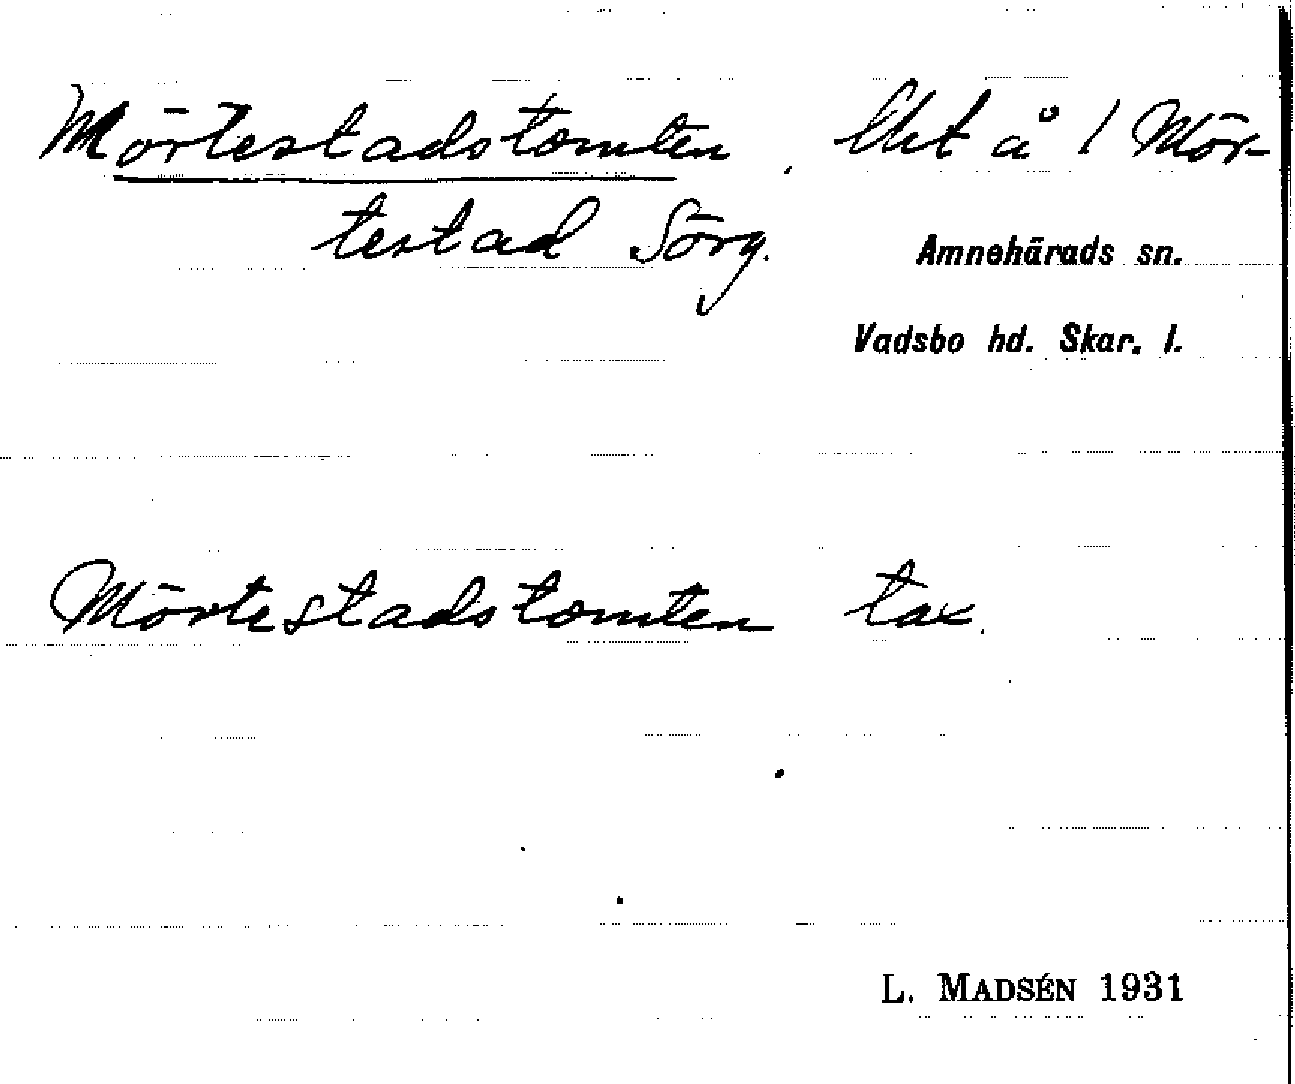 Mörtestadstomten. Lht å 1 Mör-
testad Sörg.
Amnehärads sn.
Vadsbo hd. Skar. l.
Mörtestadstomten tax.
L. MADSÉN 1931